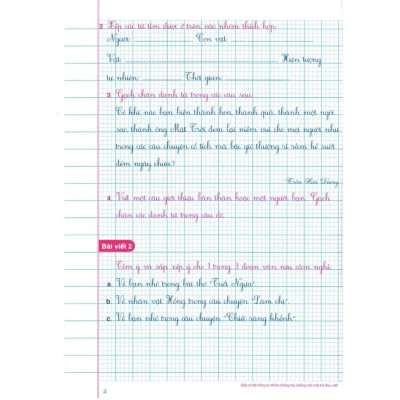 2. Xếp các từ tìm được ở trên vào nhóm thích hợp:
Người: Con vật:
Vật: Hiện tượng
tự nhiên: Thời gian:
3. Gạch chân danh từ trong các câu sau:
Có khi nào bạn biến thành hoa, thành quả, thành một ngôi
sao, thành ông Mặt Trời đem lại niềm vui cho mọi người như
trong các câu chuyện cổ tích mà bác gió thường rì rầm kể suốt
đêm ngày chưa?
Trần Hoài Dương
4. Viết một câu giới thiệu bản thân hoặc một người bạn. Gạch
chân các danh từ trong câu đó.
Bài viết 2
Tìm ý và sắp xếp ý cho 1 trong 3 đoạn văn nêu cảm nghĩ:
a. Về bạn nhỏ trong bài thơ "Tuổi Ngựa".
b. Về nhân vật Hồng trong câu chuyện "Làm chị".
c. Về bạn nhỏ trong câu chuyện "Chiếc răng khểnh".
4